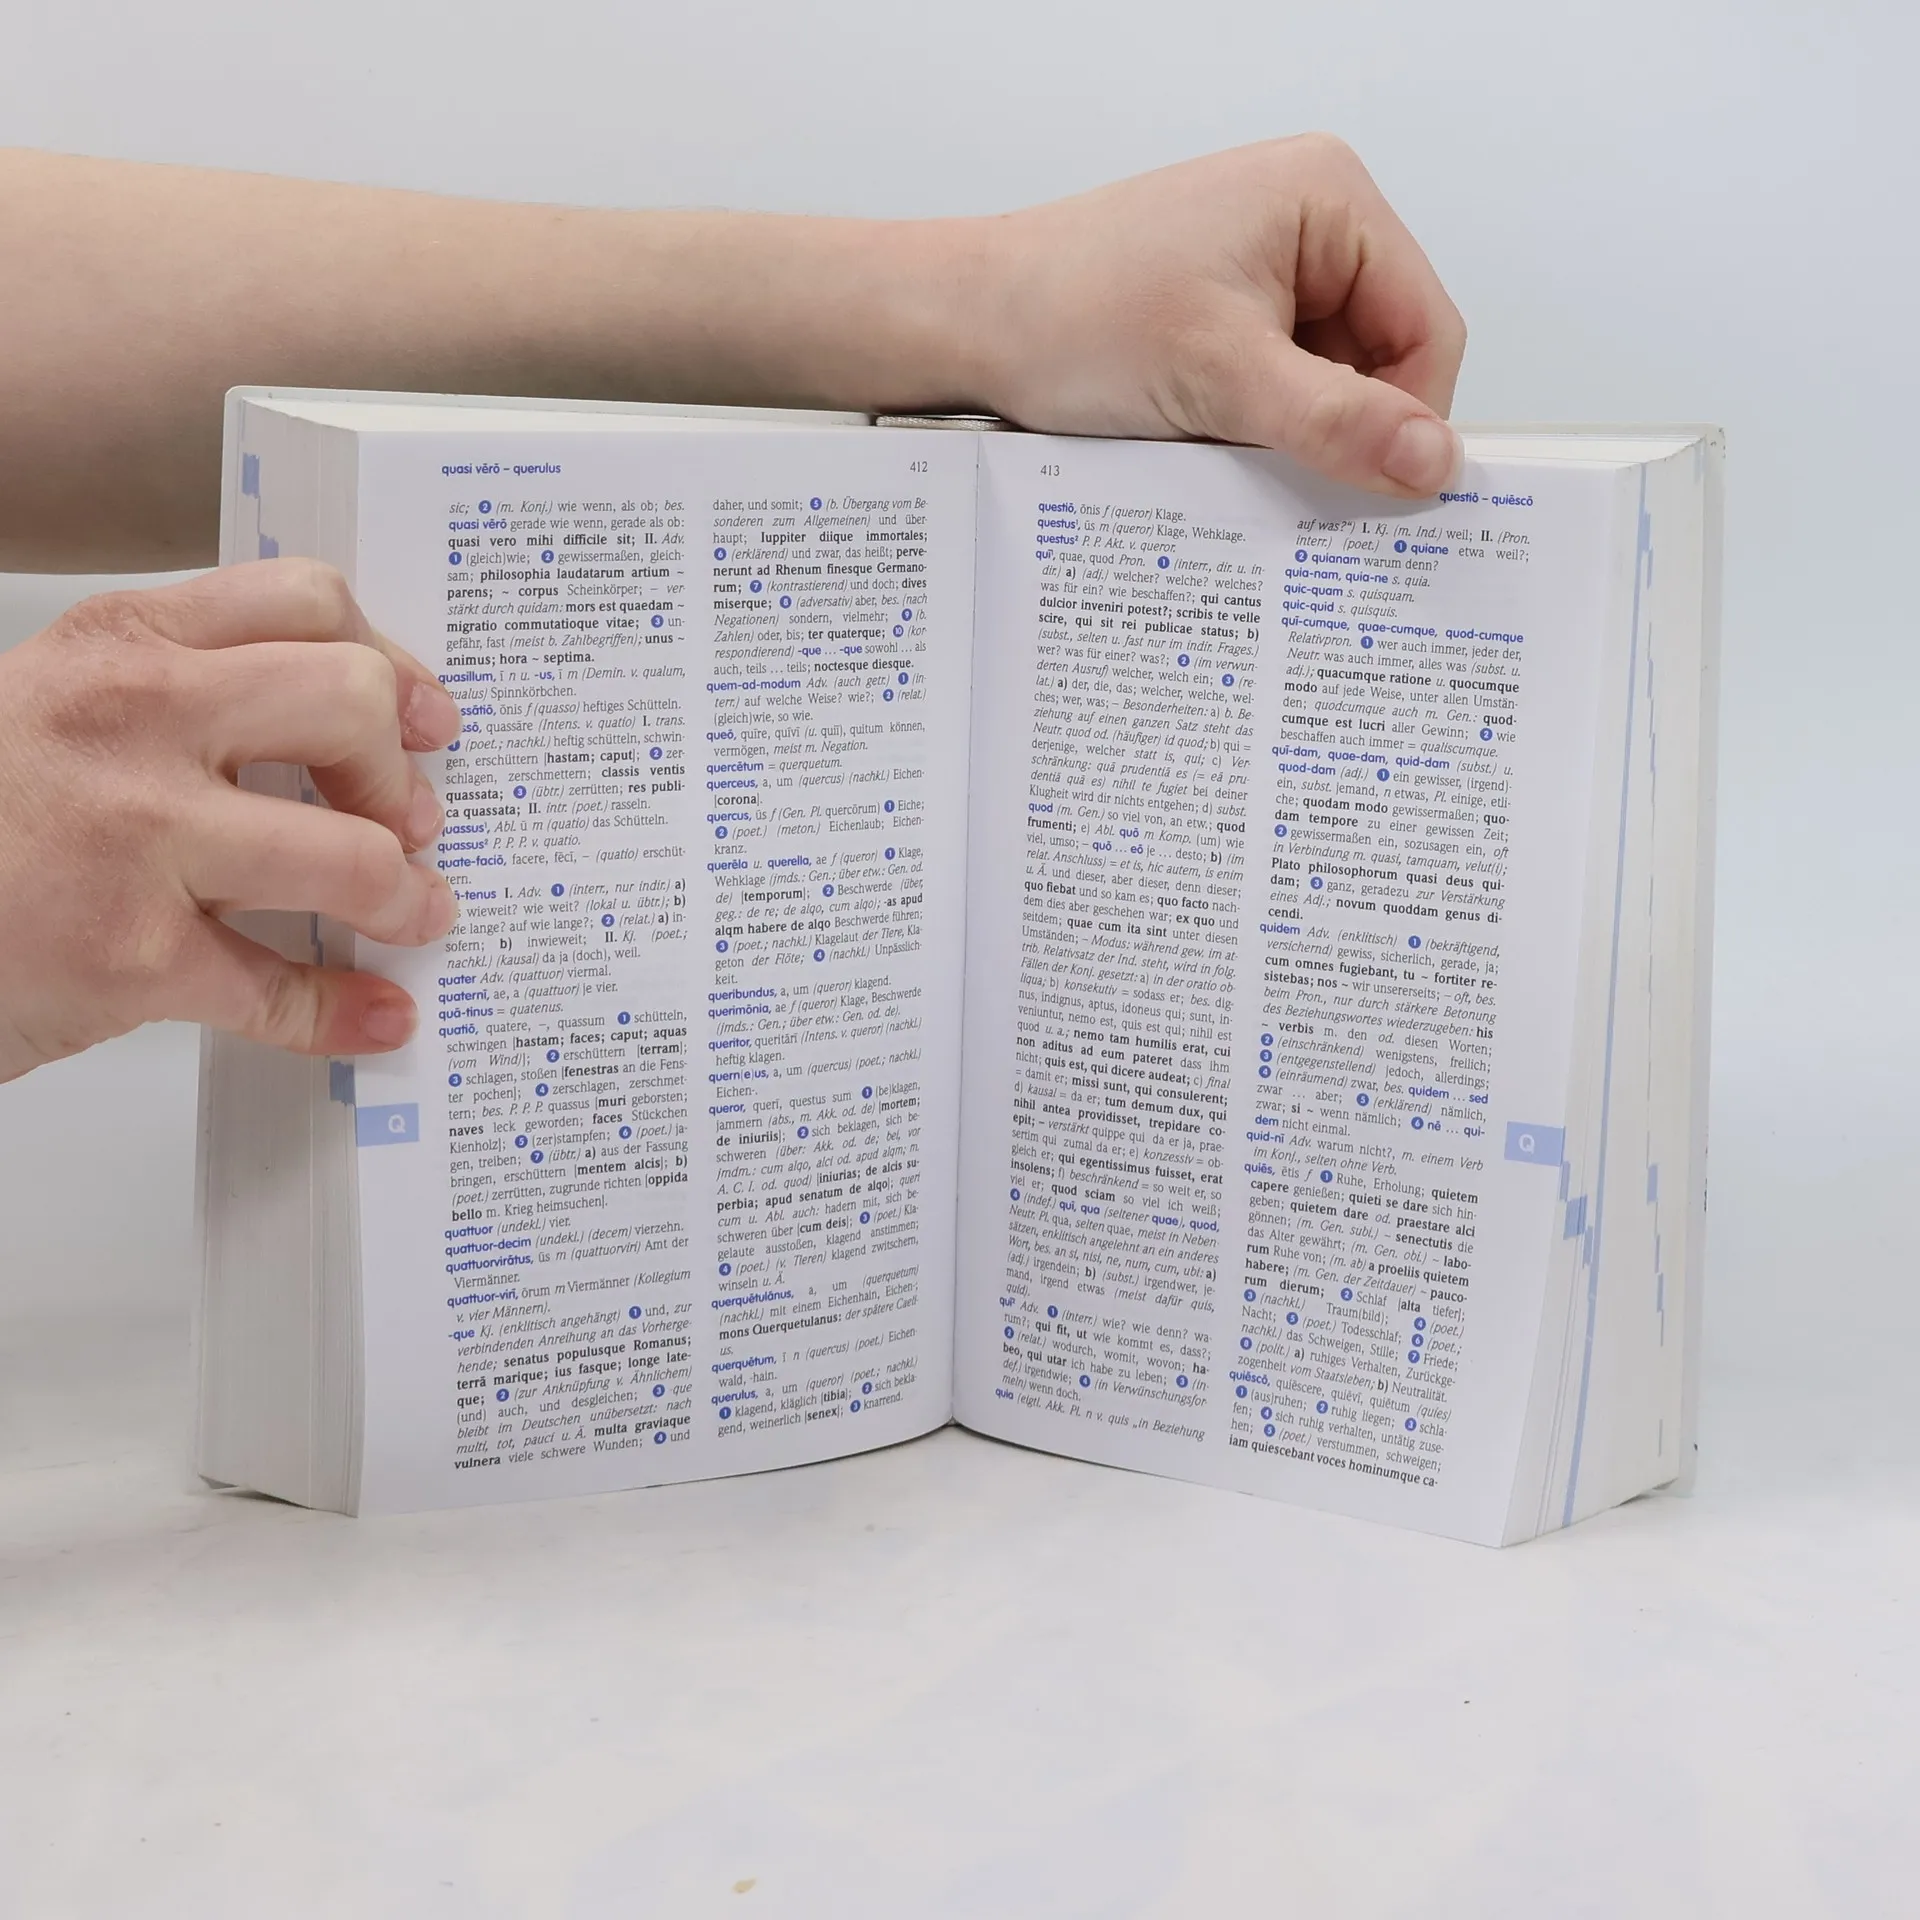 quasi vērō – querulus
412
sic; ❷ (m. Konj.) wie wenn, als ob; bes.
quasi vērō gerade wie wenn, gerade als ob:
quasi vero mihi difficile sit; II. Adv.
❶ (gleich)wie; ❷ gewissermaßen, gleich-
sam; philosophia laudatarum artium ~
parens; ~ corpus Scheinkörper; – ver-
stärkt durch quidam: mors est quaedam ~
migratio commutatioque vitae; ❸ un-
gefähr, fast (meist b. Zahlbegriffen); unus ~
animus; hora ~ septima.
quasillum, ī n u. -us, ī m (Demin. v. qualum,
qualus) Spinnkörbchen.
ssātiō, ōnis f (quasso) heftiges Schütteln.
ssō, quassāre (Intens. v. quatio) I. trans.
❶ (poet.; nachkl.) heftig schütteln, schwin-
gen, erschüttern [hastam; caput]; ❷ zer-
schlagen, zerschmettern; classis ventis
quassata; ❸ (übtr.) zerrütten; res publi-
ca quassata; II. intr. (poet.) rasseln.
quassus¹, Abl. ū m (quatio) das Schütteln.
quassus² P. P. P. v. quatio.
quate-faciō, facere, fēcī, – (quatio) erschüt-
tern.
ā-tenus I. Adv. ❶ (interr., nur indir.) a)
wieweit? wie weit? (lokal u. übtr.); b)
wie lange? auf wie lange?; ❷ (relat.) a) in-
sofern; b) inwieweit; II. Kj. (poet.;
nachkl.) (kausal) da ja (doch), weil.
quater Adv. (quattuor) viermal.
quaternī, ae, a (quattuor) je vier.
quā-tinus = quatenus.
quatiō, quatere, –, quassum ❶ schütteln,
schwingen [hastam; faces; caput; aquas
(vom Wind)]; ❷ erschüttern [terram];
❸ schlagen, stoßen [fenestras an die Fens-
ter pochen]; ❹ zerschlagen, zerschmet-
tern; bes. P. P. P. quassus [muri geborsten;
naves leck geworden; faces Stückchen
Kienholz]; ❺ (zer)stampfen; ❻ (poet.) ja-
gen, treiben; ❼ (übtr.) a) aus der Fassung
bringen, erschüttern [mentem alcis]; b)
(poet.) zerrütten, zugrunde richten [oppida
bello m. Krieg heimsuchen].
quattuor (undekl.) vier.
quattuor-decim (undekl.) (decem) vierzehn.
quattuorvirātus, ūs m (quattuorviri) Amt der
Viermänner.
quattuor-virī, ōrum m Viermänner (Kollegium
v. vier Männern).
-que Kj. (enklitisch angehängt) ❶ und, zur
verbindenden Anreihung an das Vorherge-
hende; senatus populusque Romanus;
terrā marique; ius fasque; longe late-
que; ❷ (zur Anknüpfung v. Ähnlichem)
(und) auch, und desgleichen; ❸ -que
bleibt im Deutschen unübersetzt: nach
multi, tot, pauci u. Ä. multa graviaque
vulnera viele schwere Wunden; ❹ und
daher, und somit; ❺ (b. Übergang vom Be-
sonderen zum Allgemeinen) und über-
haupt; Iuppiter diique immortales;
❻ (erklärend) und zwar, das heißt; perve-
nerunt ad Rhenum finesque Germano-
rum; ❼ (kontrastierend) und doch; dives
miserque; ❽ (adversativ) aber, bes. (nach
Negationen) sondern, vielmehr; ❾ (b.
Zahlen) oder, bis; ter quaterque; ❿ (kor-
respondierend) -que ... -que sowohl ... als
auch, teils ... teils; noctesque diesque.
quem-ad-modum Adv. (auch getr.) ❶ (in-
terr.) auf welche Weise? wie?; ❷ (relat.)
(gleich)wie, so wie.
queō, quīre, quīvī (u. quiī), quitum können,
vermögen, meist m. Negation.
quercētum = querquetum.
querceus, a, um (quercus) (nachkl.) Eichen-
[corona].
quercus, ūs f (Gen. Pl. quercōrum) ❶ Eiche;
❷ (poet.) (meton.) Eichenlaub; Eichen-
kranz.
querēla u. querella, ae f (queror) ❶ Klage,
Wehklage (jmds.: Gen.; über etw.: Gen. od.
de) [temporum]; ❷ Beschwerde (über,
geg.: de re; de alqo, cum alqo); -as apud
alqm habere de alqo Beschwerde führen;
❸ (poet.; nachkl.) Klagelaut der Tiere, Kla-
geton der Flöte; ❹ (nachkl.) Unpässlich-
keit.
queribundus, a, um (queror) klagend.
querimōnia, ae f (queror) Klage, Beschwerde
(jmds.: Gen.; über etw.: Gen. od. de).
queritor, queritārī (Intens. v. queror) (nachkl.)
heftig klagen.
quern(e)us, a, um (quercus) (poet.; nachkl.)
Eichen-.
queror, querī, questus sum ❶ (be)klagen,
jammern (abs., m. Akk. od. de) [mortem;
de iniuriis]; ❷ sich beklagen, sich be-
schweren (über: Akk. od. de; bei, vor
jmdm.: cum alqo, alci od. apud alqm; m.
A. C. I. od. quod) [iniurias; de alcis su-
perbia; apud senatum de alqo]; queri
cum u. Abl. auch: hadern mit, sich be-
schweren über [cum deis]; ❸ (poet.) Kla-
gelaute ausstoßen, klagend anstimmen;
❹ (poet.) (v. Tieren) klagend zwitschern,
winseln u. Ä.
querquētulānus, a, um (querquetum)
(nachkl.) mit einem Eichenhain, Eichen-;
mons Querquetulanus: der spätere Caeli-
us.
querquētum, ī n (quercus) (poet.) Eichen-
wald, -hain.
querulus, a, um (queror) (poet.; nachkl.)
❶ klagend, kläglich [tibia]; ❷ sich bekla-
gend, weinerlich [senex]; ❸ knarrend.
Q
413
questiō – quiēscō
questiō, ōnis f (queror) Klage.
questus¹, ūs m (queror) Klage, Wehklage.
questus² P. P. Akt. v. queror.
quī¹, quae, quod Pron. ❶ (interr., dir. u. in-
dir.) a) (adj.) welcher? welche? welches?
was für ein? wie beschaffen?; qui cantus
dulcior inveniri potest?; scribis te velle
scire, qui sit rei publicae status; b)
(subst., selten u. fast nur im indir. Frages.)
wer? was für einer? was?; ❷ (im verwun-
derten Ausruf) welcher, welch ein; ❸ (re-
lat.) a) der, die, das; welcher, welche, wel-
ches; wer, was; – Besonderheiten: a) b. Be-
ziehung auf einen ganzen Satz steht das
Neutr. quod od. (häufiger) id quod; b) qui =
derjenige, welcher statt is, qui; c) Ver-
schränkung: quā prudentiā es (= eā pru-
dentiā quā es) nihil te fugiet bei deiner
Klugheit wird dir nichts entgehen; d) subst.
quod (m. Gen.) so viel von, an etw.; quod
frumenti; e) Abl. quō m Komp. (um) wie
viel, umso; – quō ... eō je ... desto; b) (im
relat. Anschluss) = et is, hic autem, is enim
u. Ä. und dieser, aber dieser, denn dieser;
quo fiebat und so kam es; quo facto nach-
dem dies aber geschehen war; ex quo und
seitdem; quae cum ita sint unter diesen
Umständen; – Modus: während gew. im at-
trib. Relativsatz der Ind. steht, wird in folg.
Fällen der Konj. gesetzt: a) in der oratio ob-
liqua; b) konsekutiv = sodass er; bes. dig-
nus, indignus, aptus, idoneus qui; sunt, in-
veniuntur, nemo est, quis est qui; nihil est
quod u. a.; nemo tam humilis erat, cui
non aditus ad eum pateret dass ihm
nicht; quis est, qui dicere audeat; c) final
= damit er; missi sunt, qui consulerent;
d) kausal = da er; tum demum dux, qui
nihil antea providisset, trepidare co-
epit; – verstärkt quippe qui da er ja, prae-
sertim qui zumal da er; e) konzessiv = ob-
gleich er; qui egentissimus fuisset, erat
insolens; f) beschränkend = so weit er, so
viel er; quod sciam so viel ich weiß;
❹ (indef.) quī, qua (seltener quae), quod,
Neutr. Pl. qua, selten quae, meist in Neben-
sätzen, enklitisch angelehnt an ein anderes
Wort, bes. an si, nisi, ne, num, cum, ubi: a)
(adj.) irgendein; b) (subst.) irgendwer, je-
mand, irgend etwas (meist dafür quis,
quid).
quī² Adv. ❶ (interr.) wie? wie denn? wa-
rum?; qui fit, ut wie kommt es, dass?;
❷ (relat.) wodurch, womit, wovon; ha-
beo, qui utar ich habe zu leben; ❸ (in-
def.) irgendwie; ❹ (in Verwünschungsfor-
meln) wenn doch.
quia (eigtl. Akk. Pl. n v. quis „in Beziehung
auf was?“) I. Kj. (m. Ind.) weil; II. (Pron.
interr.) (poet.) ❶ quiane etwa weil?;
❷ quianam warum denn?
quia-nam, quia-ne s. quia.
quic-quam s. quisquam.
quic-quid s. quisquis.
quī-cumque, quae-cumque, quod-cumque
Relativpron. ❶ wer auch immer, jeder der,
Neutr. was auch immer, alles was (subst. u.
adj.); quacumque ratione u. quocumque
modo auf jede Weise, unter allen Umstän-
den; quodcumque auch m. Gen.: quod-
cumque est lucri aller Gewinn; ❷ wie
beschaffen auch immer = qualiscumque.
quī-dam, quae-dam, quid-dam (subst.) u.
quod-dam (adj.) ❶ ein gewisser, (irgend)-
ein, subst. jemand, n etwas, Pl. einige, etli-
che; quodam modo gewissermaßen; quo-
dam tempore zu einer gewissen Zeit;
❷ gewissermaßen ein, sozusagen ein, oft
in Verbindung m. quasi, tamquam, velut(i);
Plato philosophorum quasi deus qui-
dam; ❸ ganz, geradezu zur Verstärkung
eines Adj.; novum quoddam genus di-
cendi.
quidem Adv. (enklitisch) ❶ (bekräftigend,
versichernd) gewiss, sicherlich, gerade, ja;
cum omnes fugiebant, tu ~ fortiter re-
sistebas; nos ~ wir unsererseits; – oft, bes.
beim Pron., nur durch stärkere Betonung
des Beziehungswortes wiederzugeben: his
~ verbis m. den od. diesen Worten;
❷ (einschränkend) wenigstens, freilich;
❸ (entgegenstellend) jedoch, allerdings;
❹ (einräumend) zwar, bes. quidem ... sed
zwar ... aber; ❺ (erklärend) nämlich,
zwar; si ~ wenn nämlich; ❻ nē ... qui-
dem nicht einmal.
quid-nī Adv. warum nicht?, m. einem Verb
im Konj., selten ohne Verb.
quiēs, ētis f ❶ Ruhe, Erholung; quietem
capere genießen; quieti se dare sich hin-
geben; quietem dare od. praestare alci
gönnen; (m. Gen. subl.) ~ senectutis die
das Alter gewährt; (m. Gen. obl.) ~ labo-
rum Ruhe von; (m. ab) a proeliis quietem
habere; (m. Gen. der Zeitdauer) ~ pauco-
rum dierum; ❷ Schlaf [alta tiefer];
❸ (nachkl.) Traum(bild); ❹ (poet.)
Nacht; ❺ (poet.) Todesschlaf; ❻ (poet.;
nachkl.) das Schweigen, Stille; ❼ Friede;
❽ (polit.) a) ruhiges Verhalten, Zurückge-
zogenheit vom Staatsleben; b) Neutralität.
quiēscō, quiēscere, quiēvī, quiētum (quies)
❶ (aus)ruhen; ❷ ruhig liegen; ❸ schla-
fen; ❹ sich ruhig verhalten, untätig zuse-
hen; ❺ (poet.) verstummen, schweigen;
iam quiescebant voces hominumque ca-
Q